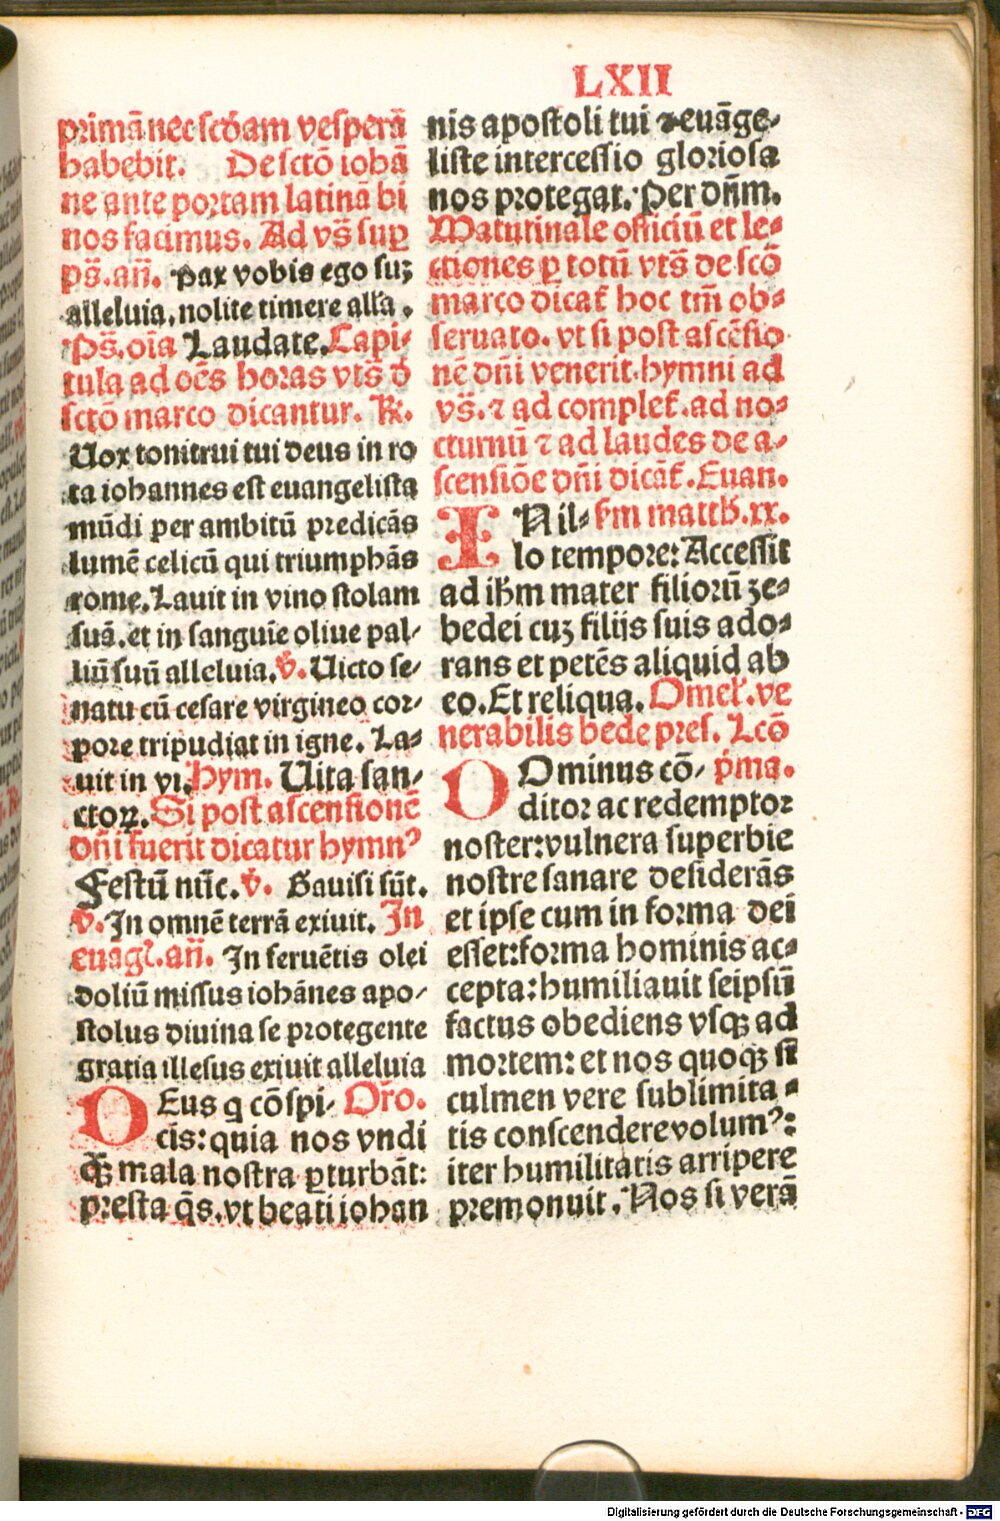 LXII
primā nec scdam vesperā
habebit. De sctō iohā
ne ante portam latinā bi
nos facimus. Ad vs̄ suꝑ
ps̄.an̄. Pax vobis ego suꝫ
alleluia, nolite timere alla.
Ps̄. oīa Laudate. Capi⸗
tula ad oēs horas vts̄ ď
sctō marco dicantur. ℟.
Uox tonitrui tui deus in ro
ta iohannes est euangelista
mūdi per ambitū predicās
lumē celicū qui triumphās
rome. Lauit in vino stolam
suā. et in sanguīe oliue pal⸗
liū suū alleluia. ℣. Uicto se⸗
natu cū cesare virgineo cor⸗
pore tripudiat in igne. La⸗
uit in vi. Hym. Uita san⸗
ctoꝝ. Si post ascensionē
dn̄i fuerit dicatur hymnꝰ
Festū nūc. ℣. Gauisi sūt.
℣. In omnē terrā exiuit. In
euagl. an̄. In feruētis olei
doliū missus iohānes apo⸗
stolus diuina se protegente
gratia illesus exiuit alleluia
DEus q cōspi⸗ Oro.
cis: quia nos vndi
qꝫ mala nostra ꝑturbāt:
presta q̄s. vt beati iohan
nis apostoli tui ⁊ euāge⸗
liste intercessio gloriosa
nos protegat. Per dn̄m.
Matutinale officiū et le⸗
ctiones ꝑ totū vts̄ de scō
marco dicat hoc tm̄ ob⸗
seruato. vt si post ascēsio
nē dn̄i venerit. hymni ad
vs̄. ⁊ ad complet. ad no⸗
cturnū ⁊ ad laudes de a⸗
scensiōe dn̄i dicat. Euan.
IN il⸗ sm matth. xx.
lo tempore: Accessit
ad ihm mater filiorū ze⸗
bedei cuꝫ filiis suis ado⸗
rans et petēs aliquid ab
eo. Et reliqua. Omel. ve
nerabilis bede pres. Lcō
DOminus cō⸗ p̄ma.
ditor ac redemptor
noster: vulnera superbie
nostre sanare desiderās
et ipse cum in forma dei
esset: forma hominis ac⸗
cepta: humiliauit seipsū
factus obediens vsqꝫ ad
mortem: et nos quoqꝫ si
culmen vere sublimita⸗
tis conscendere volumꝰ:
iter humilitatis arripere
premonuit. Nos si verā
Digitalisierung gefördert durch die Deutsche Forschungsgemeinschaft - DFG